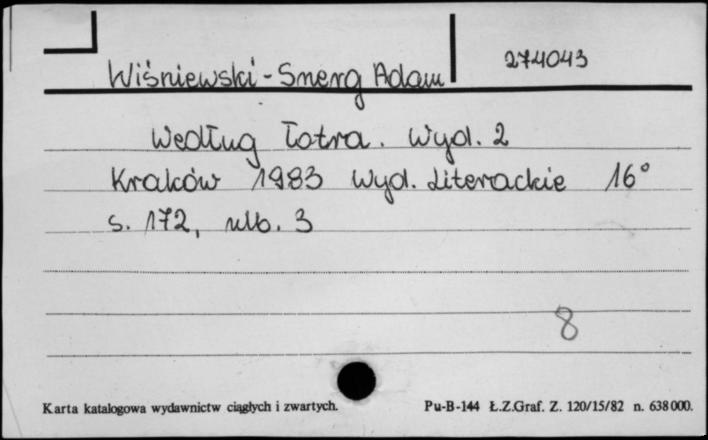 Wiśniewski-Snerg Adam 274043
Według łotra. Wyd. 2
Kraków 1983 Wyd. Literackie 16°
s. 172, nlb. 3
8
Karta katalogowa wydawnictw ciągłych i zwartych. Pu-B-144 Ł.Z.Graf. Z. 120/15/82 n. 638000.